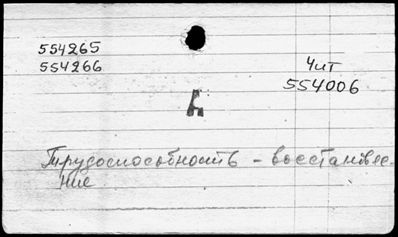 554265
554266
Чит
554006
А
Трудоспособность - восстановле
ние